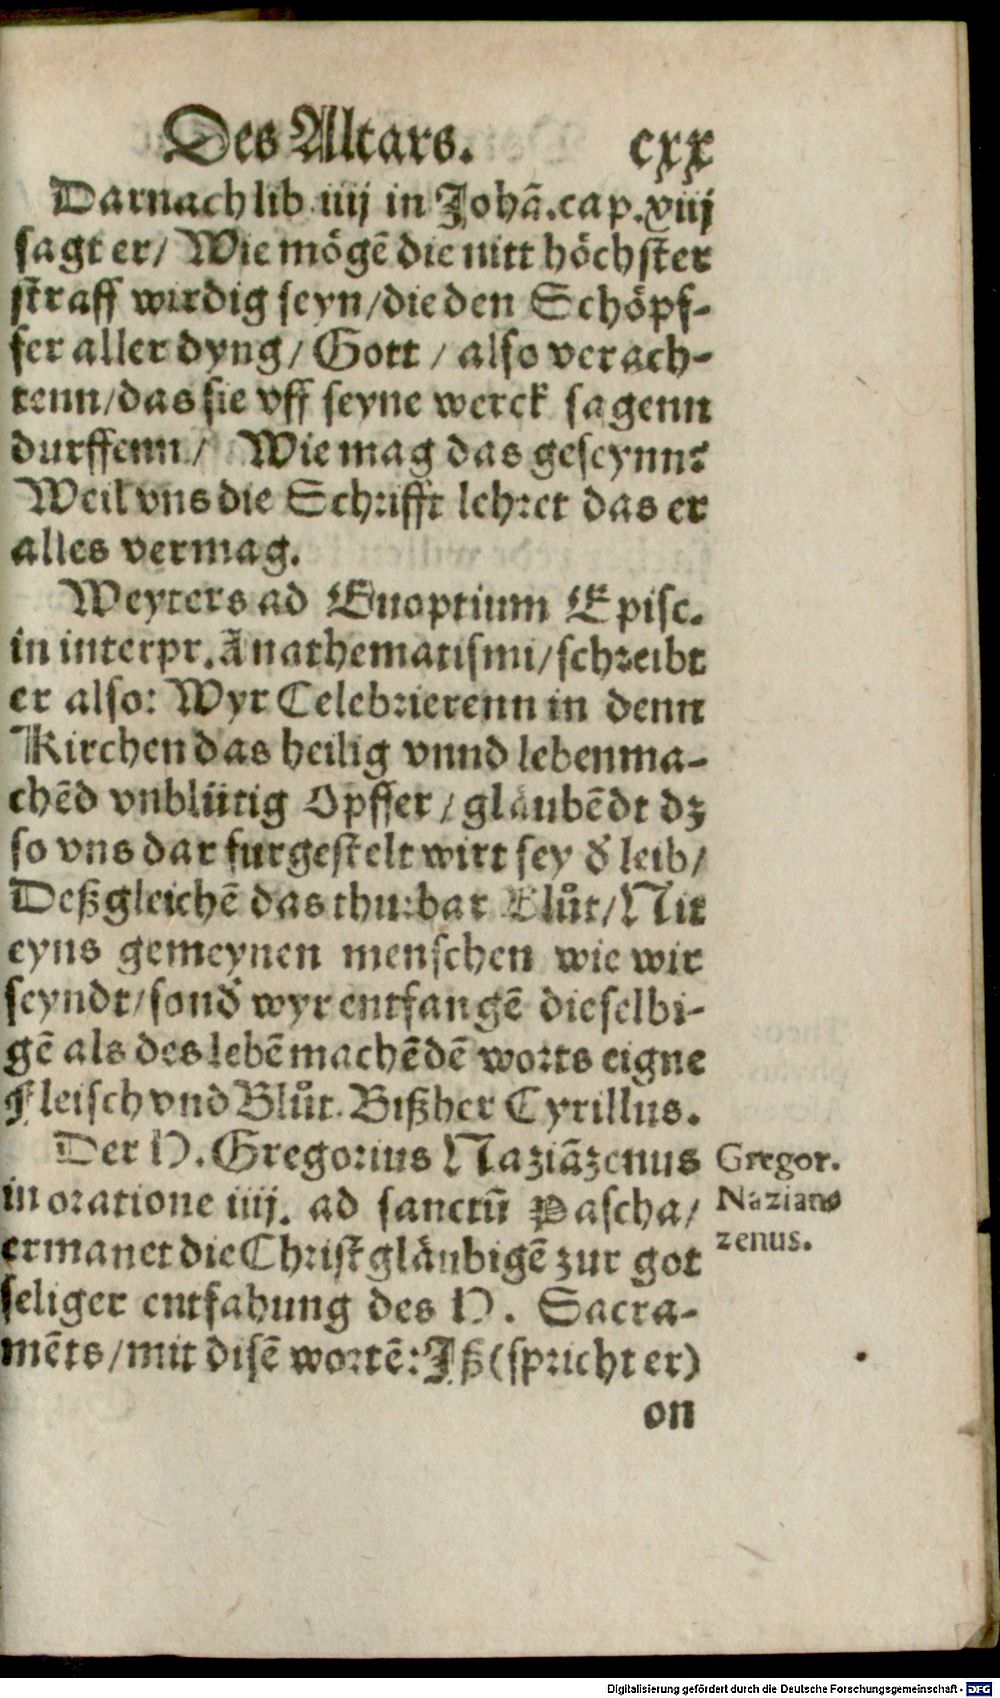 Des Altars. cxx
Darnach lib. iiij in Johã. cap. xiiij
sagt er/ Wie mögẽ die nitt höchster
straff wirdig seyn/die den Schöpf-
fer aller dyng/ Gott / also verach-
tenn/das sie vff seyne werck sagenn
durffenn/ Wie mag das geseynn?
Weil vns die Schrifft lehret das er
alles vermag.
Weyters ad Euoptium Episc.
in interpr. Anathematismi/schreibt
er also: Wyr Celebrierenn in denn
Kirchen das heilig vnnd lebenma-
chẽd vnblütig Opffer/gläubẽdt dz
so vns dar furgestelt wirt sey d̕ leib/
Deßgleichẽ das thurbar Blůt/Nit
eyns gemeynen menschen wie wir
seyndt/sond̕ wyr entfangẽ dieselbi-
gẽ als des lebẽmachẽdẽ worts eigne
Fleisch vnd Blůt. Bißher Cyrillus.
Der H. Gregorius Naziãzenus
in oratione iiij. ad sanctũ Pascha/
ermanet die Christgläubigẽ zur got
seliger entfahung des H. Sacra-
mẽts/mit disẽ wortẽ: Iß (spricht er)
on
Gregor.
Nazian⸗
zenus.
Digitalisierung gefördert durch die Deutsche Forschungsgemeinschaft - DFG